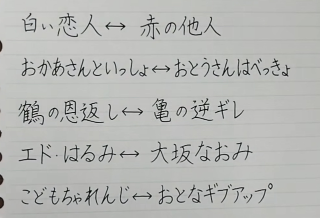 白い恋人↔赤の他人
おかあさんといっしょ↔おとうさんはべっきょ
鶴の恩返し↔亀の逆ギレ
エド・はるみ↔大坂なおみ
こどもちゃれんじ↔おとなギブアップ